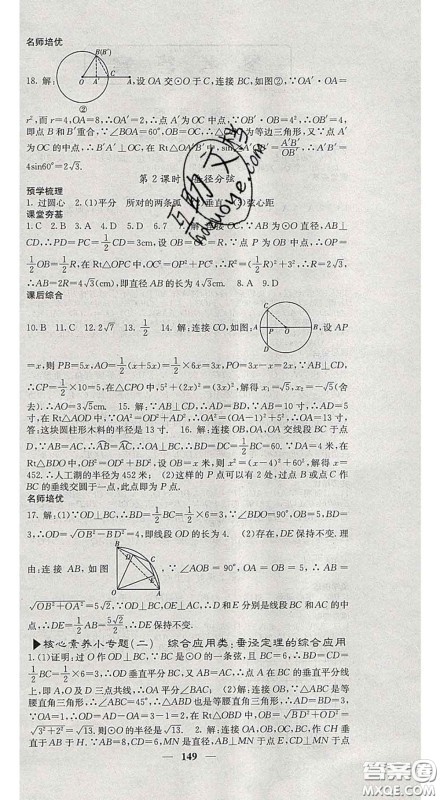 名师培优
18. 解: ,设OA交⊙O于C,连接BC,如图②,∵OA′·OA=
②
r²,而r=4,OA=8,∴OA′=2,∵OB′·OB=4²,∴OB′=4,
即点B和B′重合,∵∠BOA=60°,OB=OC,∴△OBC为等边三角形,而点A′
为OC的中点,∴B′A′⊥OC,在Rt△OA′B′中,sin∠A′OB′=A′B′/OB′,∴A′B′=
4sin60°=2√3.
第2课时 径分弦
预学梳理
1. 过圆心 2.(1)平分 所对的两条弧 垂直 (3)弦心距
课堂夯基
1. C 2. B 3. A 4. D 5. D 6. 7 连接OC,∵AB为⊙O直径,AB⊥
CD,∴PD=PC=1/2CD=2√3cm,∠OPC=90°.∵点P为OB中点,∴OP=
1/2OB,在Rt△OPC中,OC²=OP²+PC²,∴R²=(1/2R)²+(2√3)²,∴R²=
1/4R²+12,∴R=4√3(cm),即直径AB的长为8√3cm. 8. A 9. C
课后综合
10. B 11. C 12. 2√7 13. 1/2 14. 解:连接CO,如图, ,设AP
=x,则PB=5x,AO=1/2AB=1/2(x+5x)=1/2×6x=3x,PO=3x-x=2x,∵AB⊥CD,
∴CP=1/2CD=1/2×10=5,在△CPO中,5²+(2x)²=(3x)²,解得x₁=√5,x₂=-√5(舍
去).∴AO=3√5cm. 15. 解:∵AB⊥CD,∴AD=BD,∵AB=10寸,∴AD=5
寸,在Rt△AOD中,∵OA²=OD²+AD²,∴OA²=(OA-1)²+5²,∴OA=13寸,
答:这块圆柱形木料的半径是13寸. 16. 解:连接OB,OA,OA交线段BC于点
D,∵AB=AC,∴AB=AC,∴OA⊥BC,∴BD=DC=1/2BC=60.∵DA=4米,在
Rt△BDO中,OB²=OD²+BD²,设OB=x米,则x²=(x-4)²+60²,解得x=452
米,∴人工湖的半径为452米;(2)这样的P点可以有2处,过点B或C作
BC的垂线交圆于一点,此点即为P点.
名师培优
17. 解:(1)∵OD⊥BC,∴BD=1/2BC=1/2×6=3,∵∠BDO=90°,OB=5,BD=
3,∴OD=√(OB²-BD²)=4,即线段OD的长为4. (2)存在,DE保持不变.理
由:连接AB,如图 ,∵∠AOB=90°,OA=OB=5,∴AB=
√(OB²+OA²)=5√2,∵OD⊥BC,OE⊥AC,∴D和E分别是线段BC和AC的中
点,∴DE=1/2AB=5√2/2,∴DE保持不变.
核心素养小专题(二) 综合应用类:垂径定理的综合应用
1.(1)证明:过O作OD⊥BC于D,∵BC是⊙O的一条弦,且BC=6,∴BD=CD=
1/2BC=1/2×6=3,∴OD垂直平分BC,又AB=AC,∴点A在BC的垂直平分线
上,即A,O及D三点共线,∴OA平分∠BAC; (2)解:连接OB,∵△ABC是等
腰直角三角形,∴∠ABC=45°,∴△ABD也是等腰直角三角形,∴AD=BD=3,
∵OA=1,∴OD=AD-OA=3-1=2,在Rt△OBD中,OB=√(BD²+OD²)=
√(3²+2²)=√13,则⊙O的半径是√13. 2. 解:连接OA,OB,OC,作CH垂
直于AB于H.∵AB=8,CD=6,MN是直径,AB⊥MN于点E,CD⊥MN于点F,
149